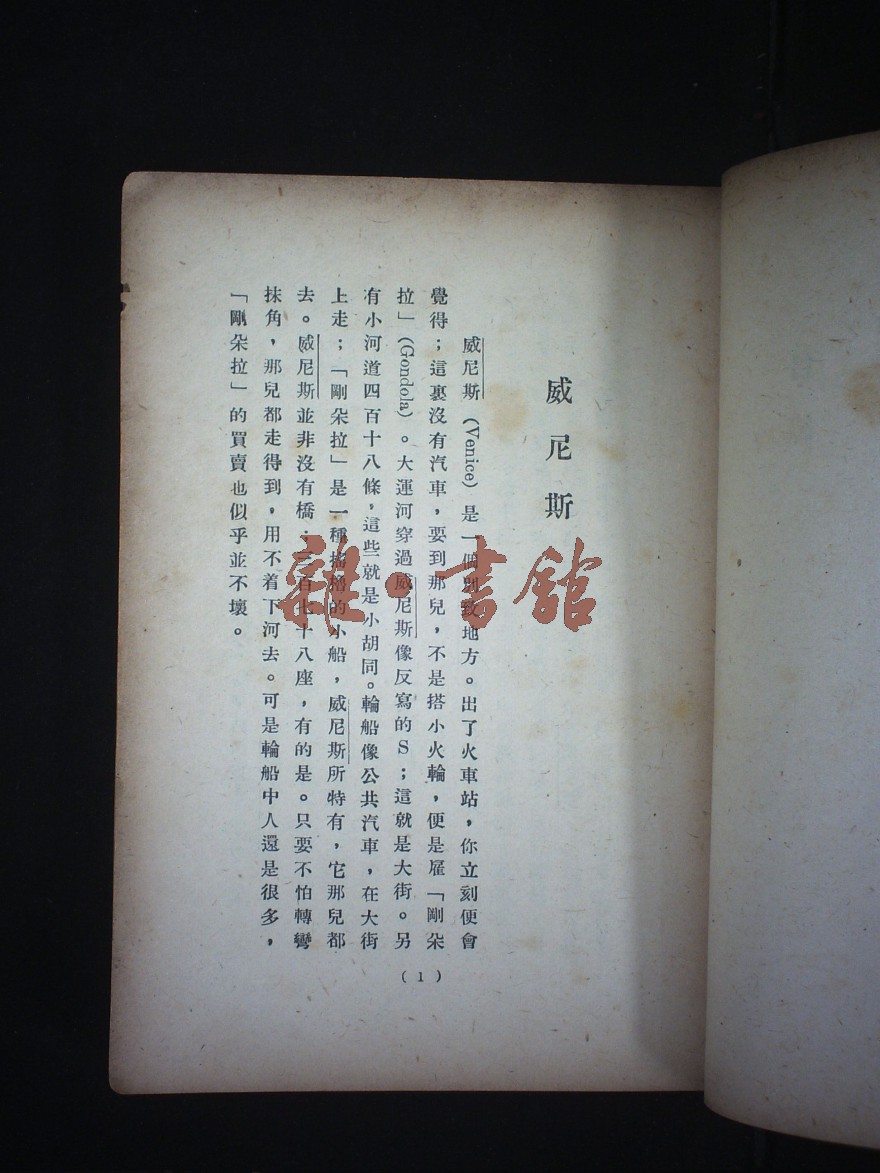 威尼斯
威尼斯(Venice)是一個別致地方。出了火車站，你立刻便會
覺得；這裏沒有汽車，要到那兒，不是搭小火輪，便是雇「剛朵
拉」(Gondola)。大運河穿過威尼斯像反寫的S；這就是大街。另
有小河道四百十八條，這些就是小胡同。輪船像公共汽車，在大街
上走；「剛朵拉」是一種搖櫓的小船，威尼斯所特有，它那兒都
去。威尼斯並非沒有橋；三百七十八座，有的是。只要不怕轉彎
抹角，那兒都走得到，用不着下河去。可是輪船中人還是很多，
「剛朵拉」的買賣也似乎並不壞。
(1)
雜·書館